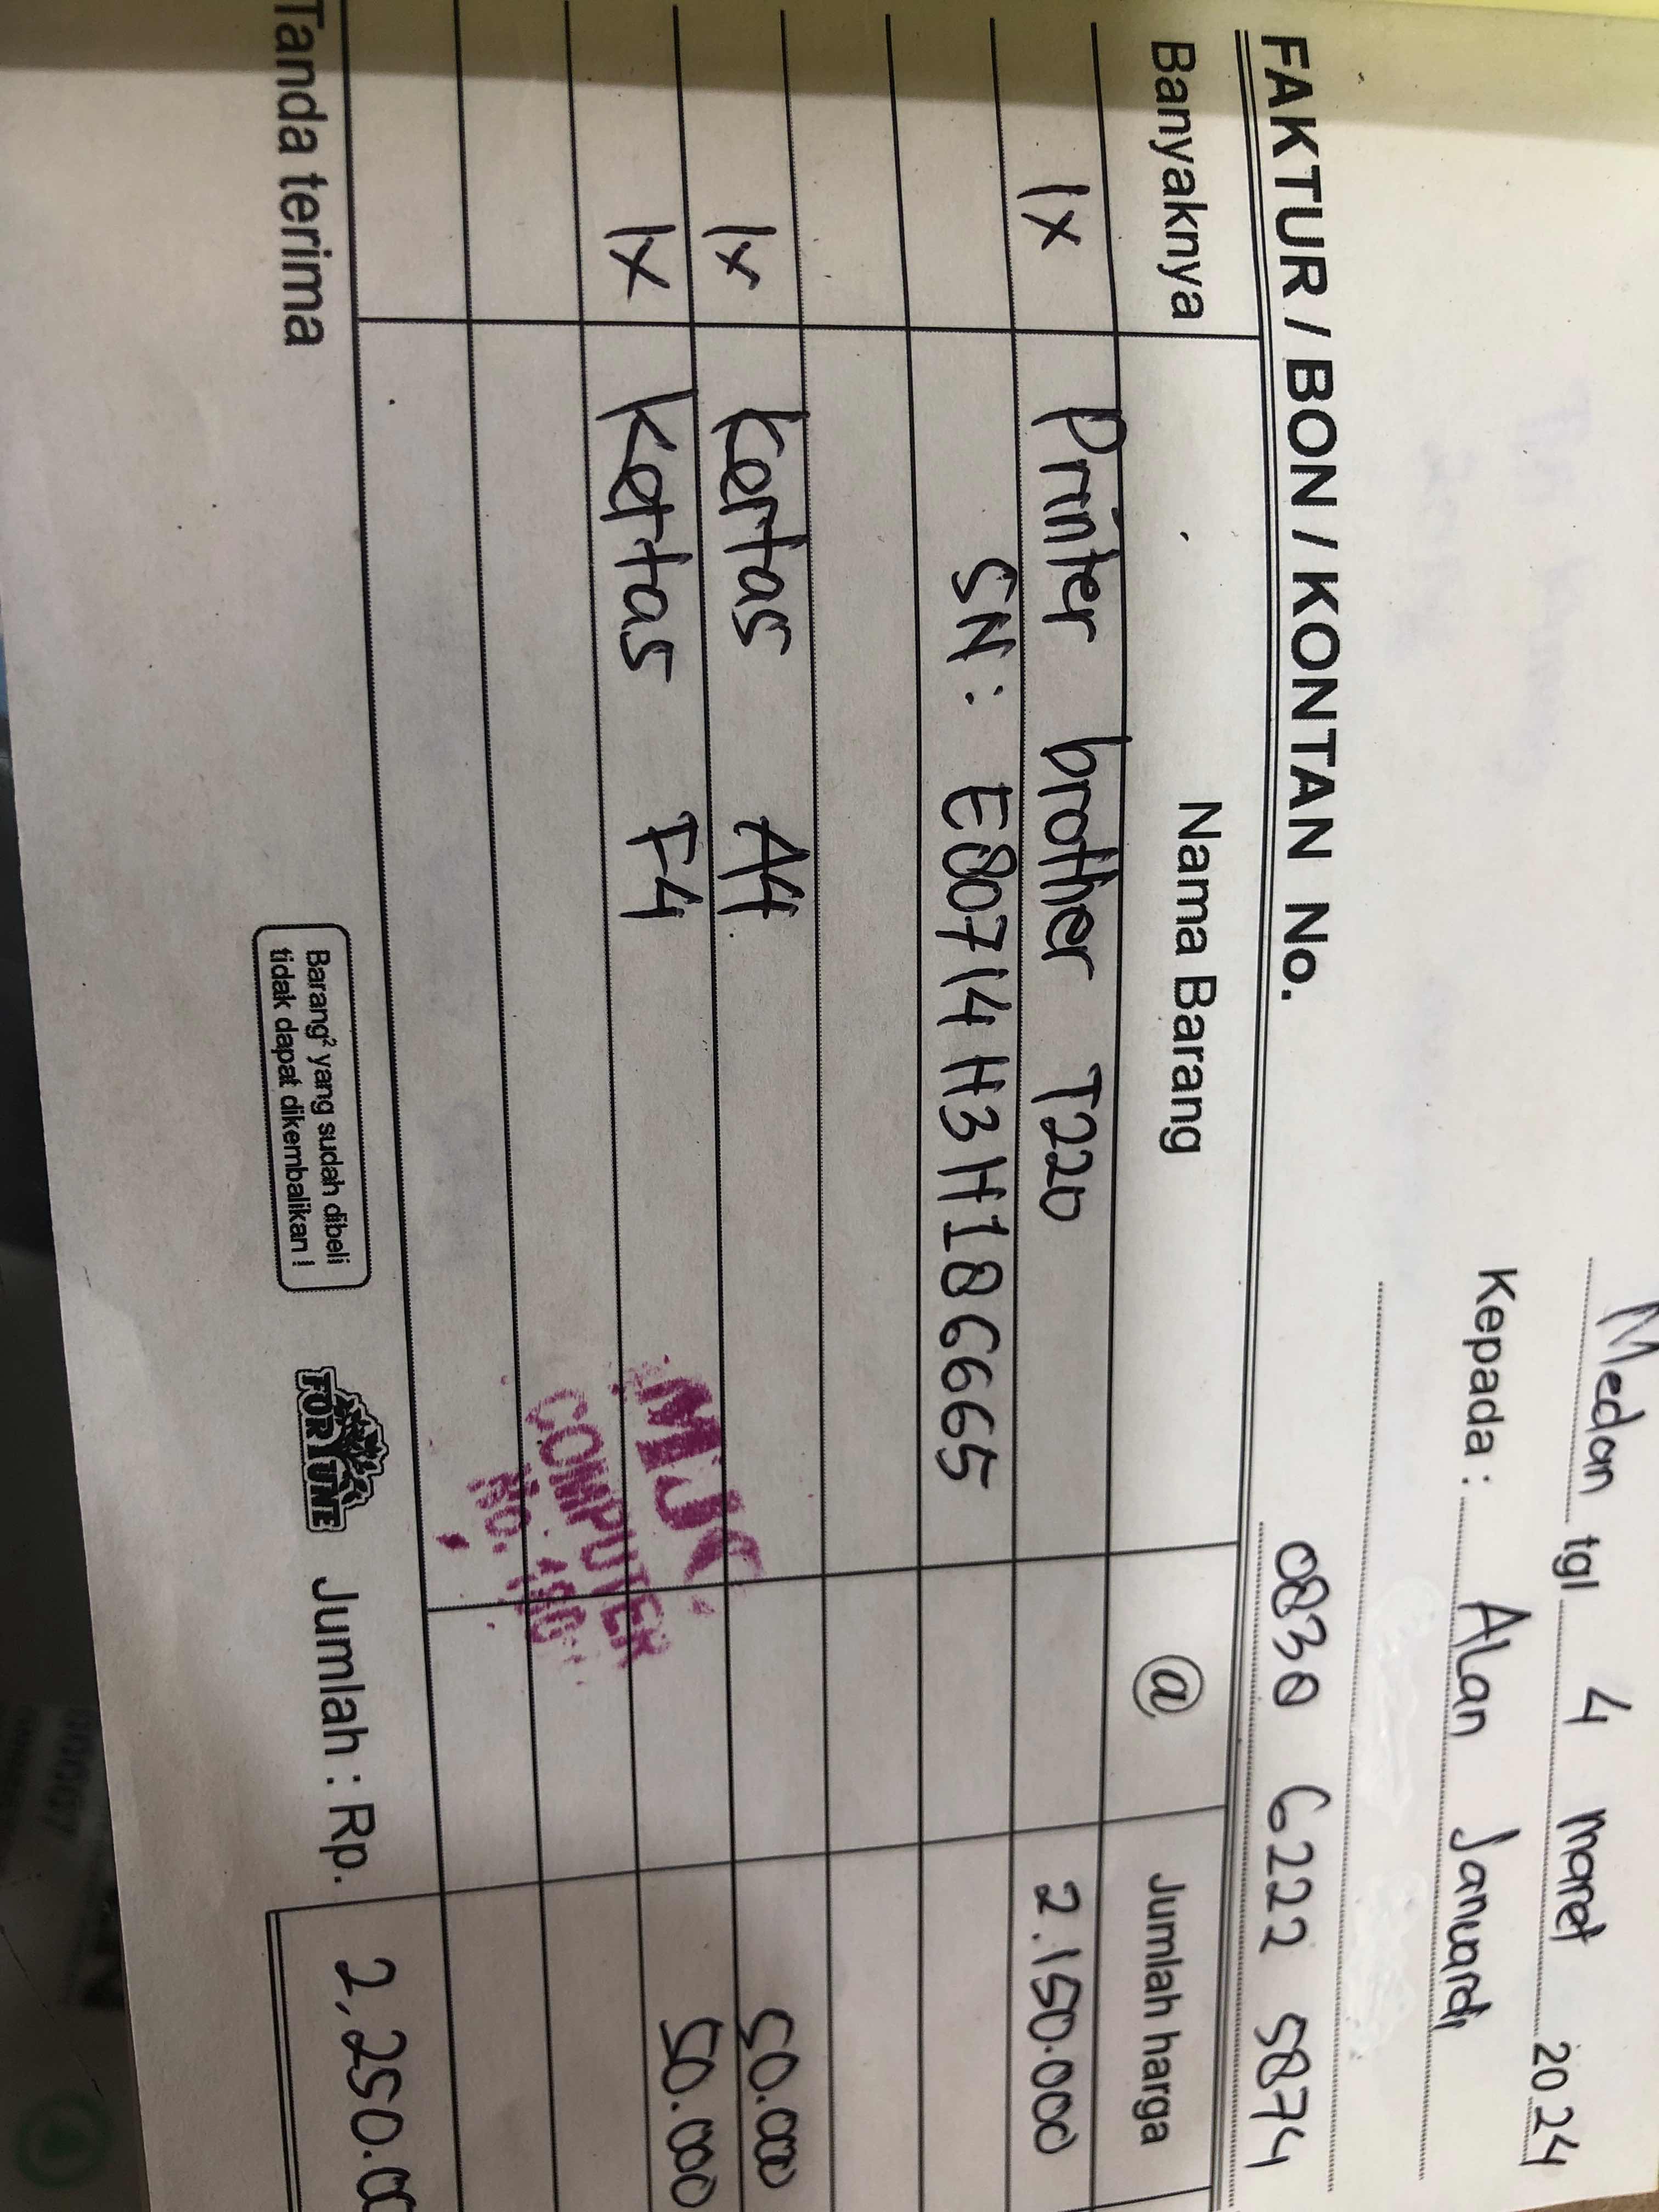 Medan tgl 4 maret 2024
Kepada : ALan Januardi
0830 6222 5874
FAKTUR / BON / KONTAN No.
Banyaknya Nama Barang @ Jumlah harga
1x Printer brother T220 2.150.000
SN: E80714H3H186665
1x Kertas A4 50.000
1x Kertas F4 50.000
MJC
COMPUTER
NO.
Tanda terima
Barang² yang sudah dibeli
tidak dapat dikembalikan !
FORTUNE
Jumlah : Rp. 2,250.00